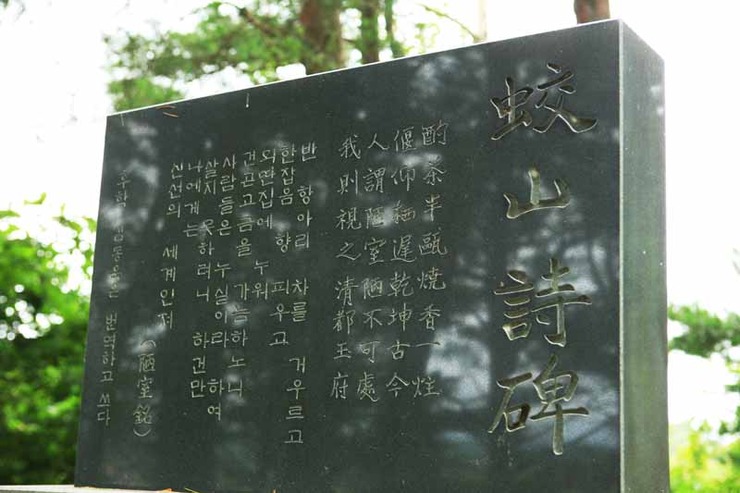 蛟山詩碑
酌茶半甌燒香一炷
偃仰栖遲乾坤古今
人謂陋室陋不可處
我則視之清都玉府
반 항아리 차를 거우르고
한잡음 향 피우고
외딴집에 누워
건곤고금을 가늠하노니
사람들은 누실이라 하여
살지 못하려니 하건만
나에게는
신선의 세계인저
(陋室銘)
후학 번역하고 쓰다